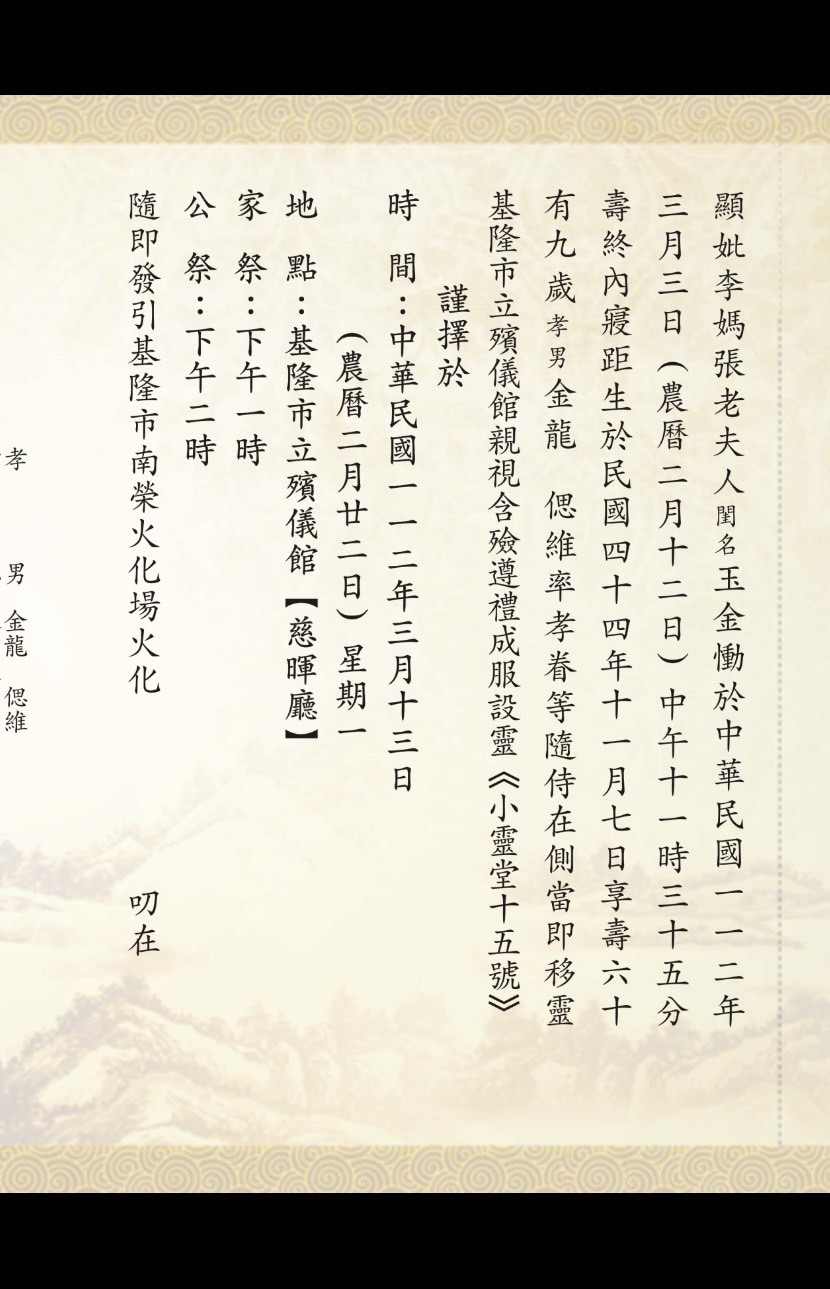 顯妣李媽張老夫人閨名玉金慟於中華民國一一二年
三月三日（農曆二月十二日）中午十一時三十五分
壽終內寢距生於民國四十四年十一月七日享壽六十
有九歲孝男金龍　偲維率孝眷等隨侍在側當即移靈
基隆市立殯儀館親視含殮遵禮成服設靈《小靈堂十五號》
謹擇於
時　間：中華民國一一二年三月十三日
（農曆二月廿二日）星期一
地　點：基隆市立殯儀館【慈暉廳】
家　祭：下午一時
公　祭：下午二時
隨即發引基隆市南榮火化場火化　叨在
孝　男　金龍　偲維